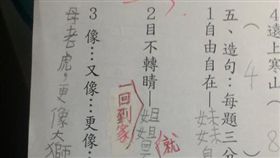 4遠上寒山
4
五、造句:每題三分
1自由自在—
妹妹
2目不轉睛—
姐姐
就
一回到家
3像…又像…更像…
母老虎,更像大獅